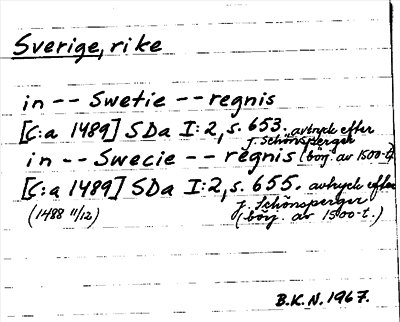 Sverige, rike
in -- Swetie -- regnis
[C:a 1489] SDa I:2, s. 653. avtryck efter
J. Schönsperger
in -- Swecie -- regnis (börj. av 1500-t.)
[C:a 1489] SDa I:2, s. 655. avtryck efter
J. Schönsperger
(1488 11/12) (börj. av 1500-t.)
B.K.N. 1967.